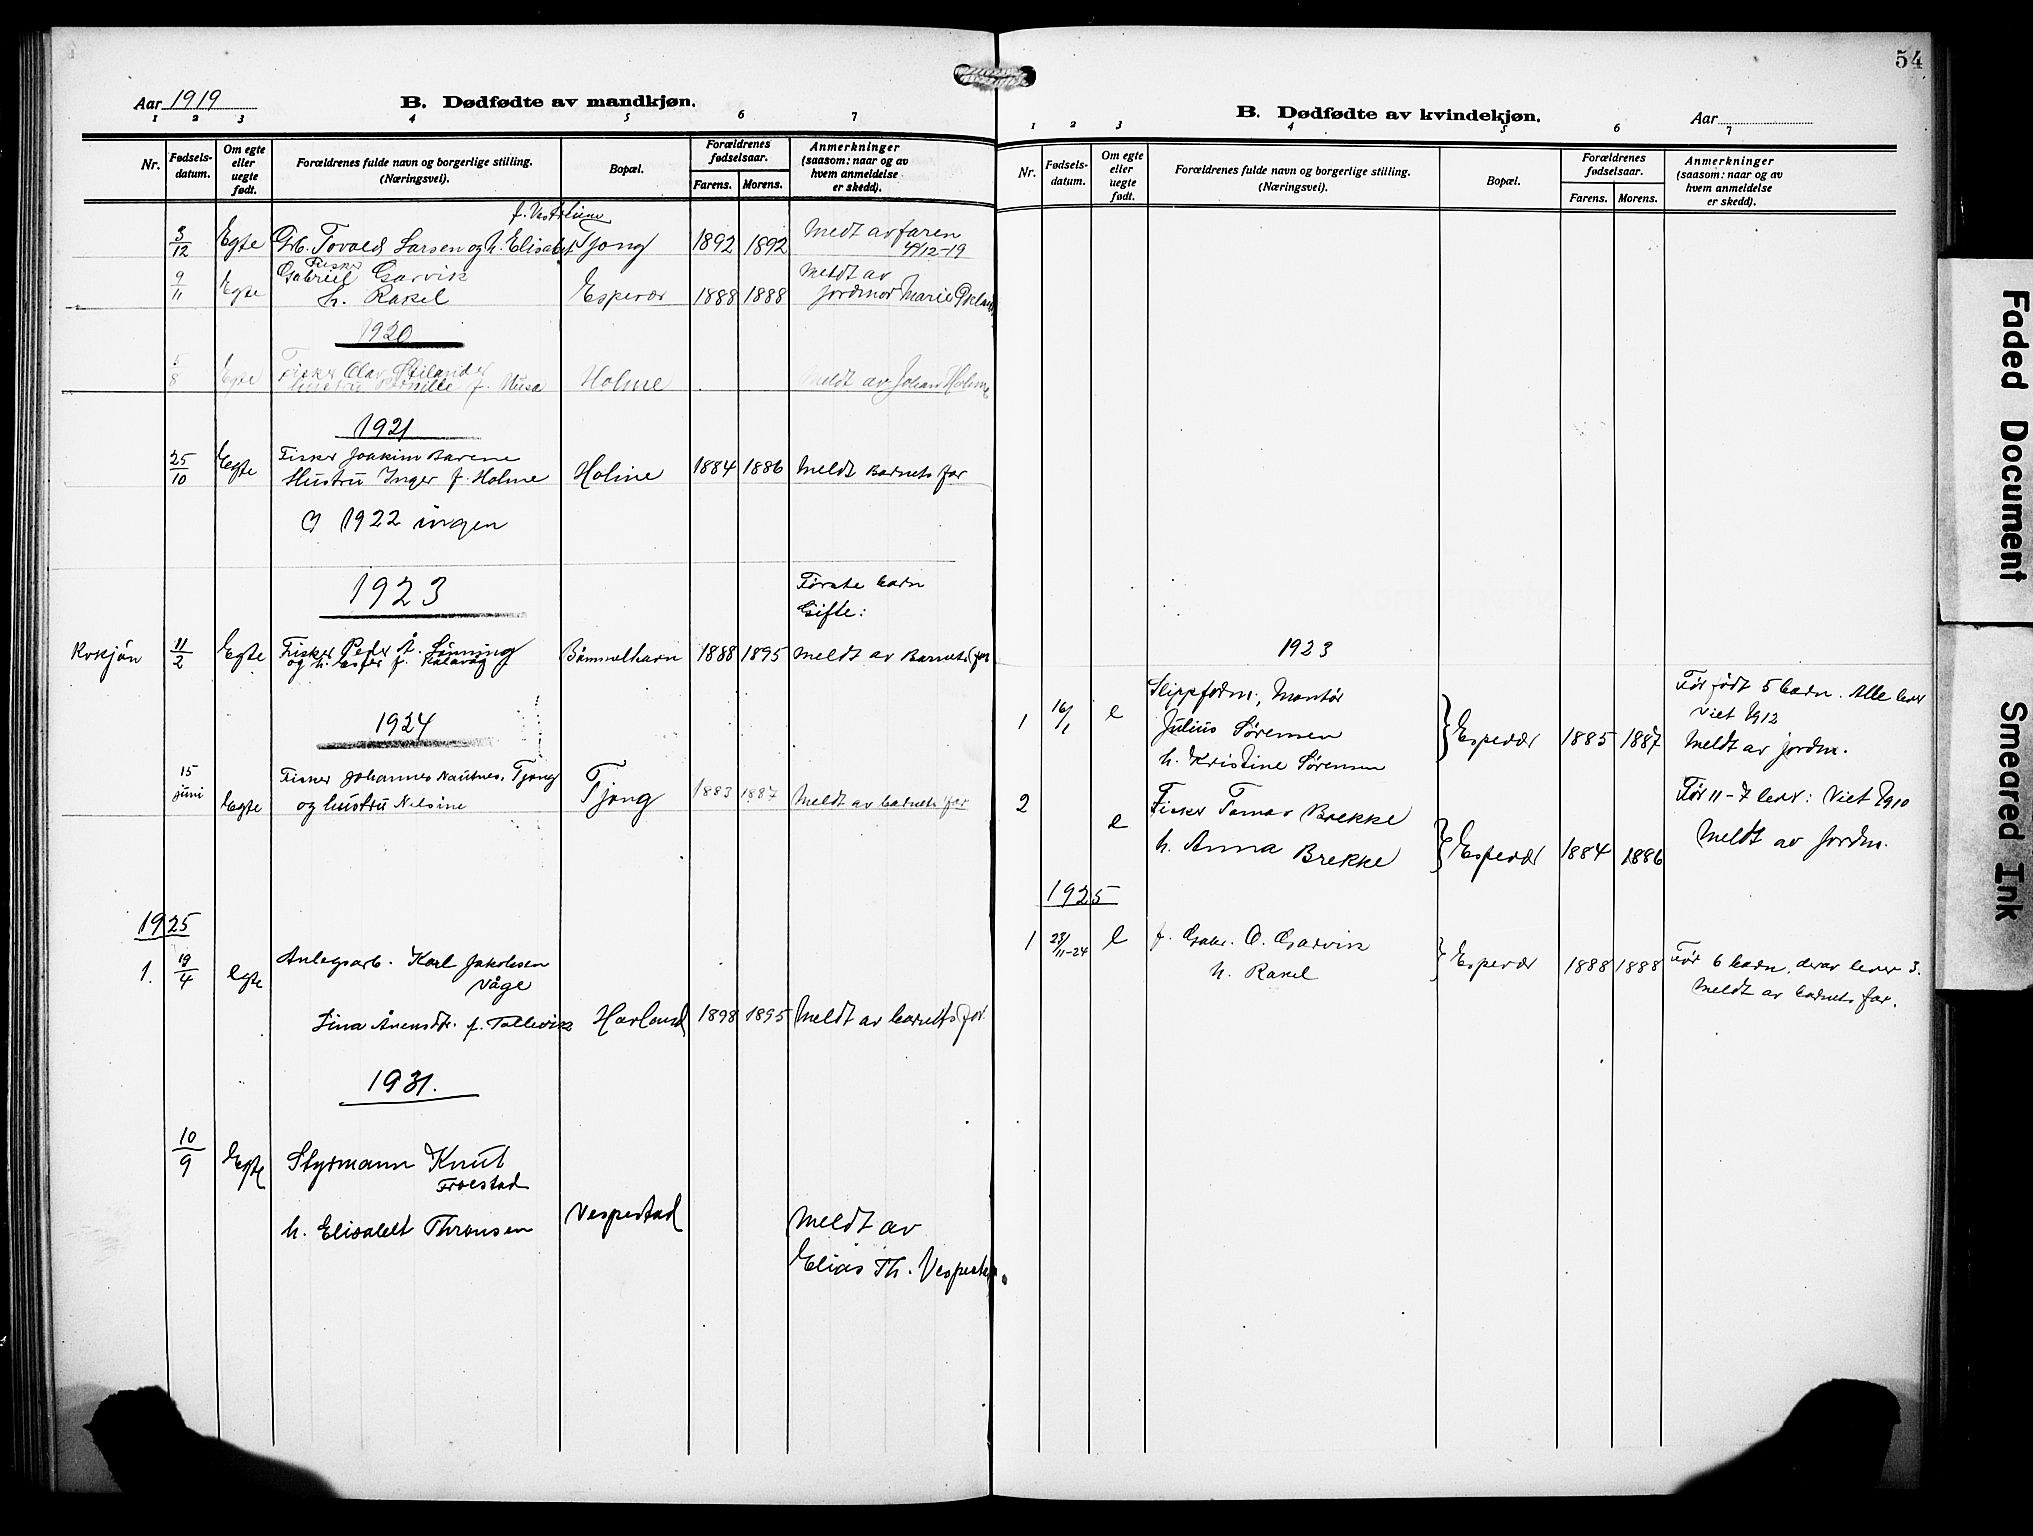 Aar 1919
B. Dødfødte av mandkjøn.
1 2 3 4 5 6 7
Nr.
Fødsels-
datum.
Om egte
eller
uegte
født.
Forældrenes fulde navn og borgerlige stilling.
(Næringsvei).
Bopæl.
Forældrenes
fødselsaar.
Farens. Morens.
Anmerkninger
(saasom: naar og av
hvem anmeldelse
er skedd).
3/12 Egte Tovald Larsen og h. Elisabet Tjong 1892 1892 Meldt av faren
9/11 Egte Fisker
Gabriel Garvik
h. Rakel Espevær 1888 1888 Meldt av
jordmor Marie
1920
5/8 Egte Fisker Olav
hustru Pernille f. Husa Holme Meldt av Johan Holme
1921
25/10 Egte Fisker Joakim
Hustru Inger f. Holme Holme 1884 1886 Meldt Barnets far
I 1922 ingen
1923
Første barn
Gifte:
11/2 Egte Fisker Peder A. Sønning
og h. Ester f. Bømmelhavn 1888 1895 Meldt av Barnets far
1924
15
juni Egte Fisker Johannes Nautnes, Tjong
og hustru Nilsine Tjong 1883 1887 Meldt av barnets far
1925
1. 19/4 egte Anlegsarb. Karl Jakobsen
Våge
Lina f. Tollevik Havland 1898 1895 Meldt av barnets far.
1931.
10/9 Egte Styrmann Knut
Frøestad
h. Elisabet Thronsen Vespestad Meldt av
Elias Th. Vespestad.
54
B. Dødfødte av kvindekjøn.
Aar
1 2 3 4 5 6 7
Nr.
Fødsels-
datum.
Om egte
eller
uegte
født.
Forældrenes fulde navn og borgerlige stilling.
(Næringsvei).
Bopæl.
Forældrenes
fødselsaar.
Farens. Morens.
Anmerkninger
(saasom: naar og av
hvem anmeldelse
er skedd).
1923
1 16/1 e Slippform., Montør
Julius Sørensen
h. Kristine Sørensen Espevær 1885 1887 Før født 5 barn. Alle lever
Viet 1912
Meldt av jordm.
2 e Fisker Tomas Brekke
h. Anna Brekke Espevær 1884 1886 Før 11 - 7 lever: Viet 1910
Meldt av Jordm.
1925
1 23/11-24 e f. Gabr. O. Garvik
h. Rakel Espevær 1888 1888 Før 6 barn, derav lever 3.
Meldt av barnets far.
Faded Document
Smeared Ink